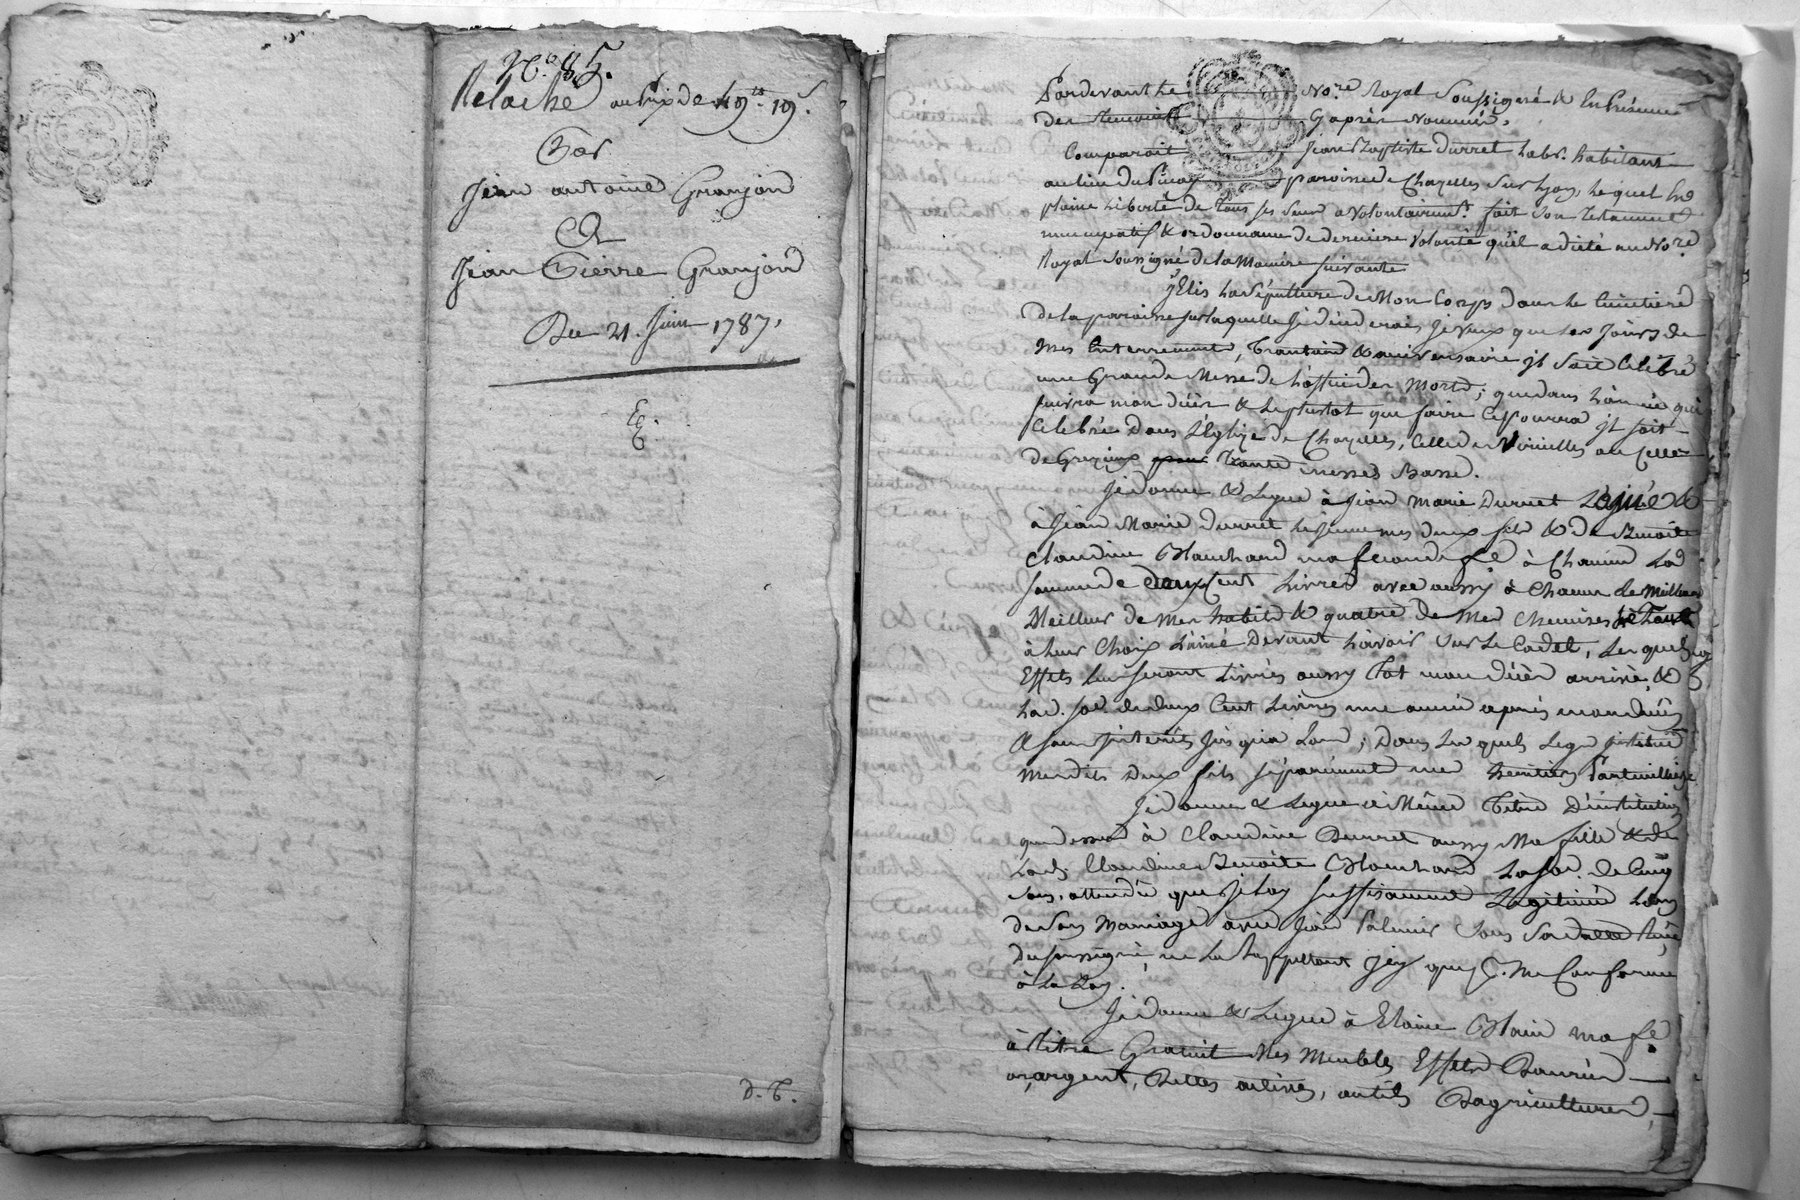 N.º 85.
Relache au prix de 19.ᵗᵗ 19.ˢ
Par
Jean antoine Granjond
Et
Jean Pierre Granjond
Du 21. Juin 1787.
E.
D.-T.
Pardevant Le No.re Royal Soussigné & En Présence
Des Temoins Cy après Nommés,
Comparoit Jean Baptiste Durret Labr. habitant
au lieu du paroisse de Chazelles Sur Lyon, Lequel En
plaine Liberté de Tous ses Sens a volontairemt. fait Son Testament
nuncupatif & ordonnance de derniere Volonté qu'il a dicté au No.re
Royal Soussigné de la Maniere Suivante
J'Elis La Sépulture de Mon Corps dans Le Cimetiere
De la paroisse sur laquelle Je décéderai, Je veux que Les Jours de
Mes Enterrement, Trantain & aniversaire Jl Soit Célébré
une Grande Messe de L'office des Morts; que dans L'année qui
Suivra mon décès & Le plustot que faire Ce pourra jl soit
Célébré Dans L'Eglise de Chazelles, Celle de Viricelles ou Celle
de Grezieux Trante messes Basse.
Je donne & Legue à Jean Marie Durret L'ainé &
à Jean Marie Durret Le Jeune mes deux fils & de Benoite
Claudine Blanchard ma seconde fe à Chacun La
somme de deux Cent Livres avec aussy à Chacun Le Meilleur
Meilleur de Mes habits & quatre de Mes Chemises
à Leur Choix L'ainé Devant L'avoir Sur Le Cadet, Lesquels
Effets Leur seront Livrés aussy Tot mon décès arrivé, &
Lad. soe. de deux Cent Livres une année après mon décès
& sans jnterets Jusqu'a Lors; Dans Les quels Legs jnstitue
Mesdits Deux fils séparément mes heritiers Particulliers
Je donne & Legue à Même Titre D'institution
que dessus à Claudine Durret aussy Ma fille & de
Lad. Claudine Benoite Blanchard La soe. de Cinq
Sous, attendu que Je L'ay suffisamment Legitimé Lors
de Son Mariage avec Jean Palmier
du soussigné,
à La Loy.
Je donne & Legue à Etaine Blain ma fe
à Titre Gratuit Mes Meubles Effets Danrées
or, argent, Dettes actives, outils D'agriculture,